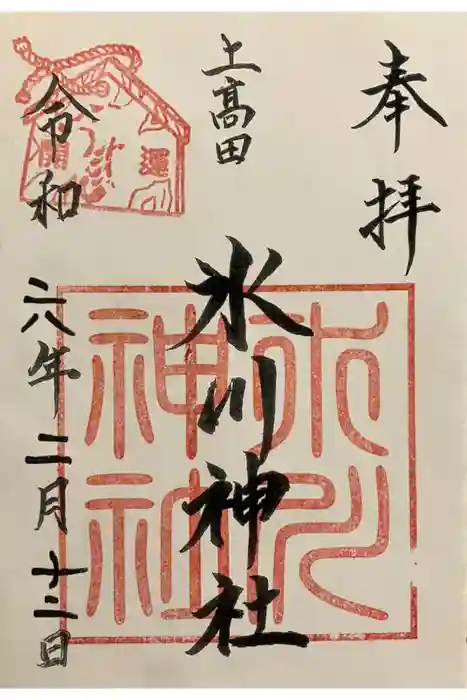 奉拝
上髙田
氷川神社
令和六年二月十二日
開運
氷川
神社